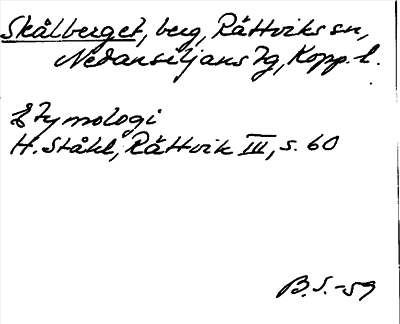 Skålberget, berg, Rättviks sn,
Nedansiljans tg, Kopp. l.
Etymologi
H. Ståhl, Rättvik III, s. 60
B.S.-59